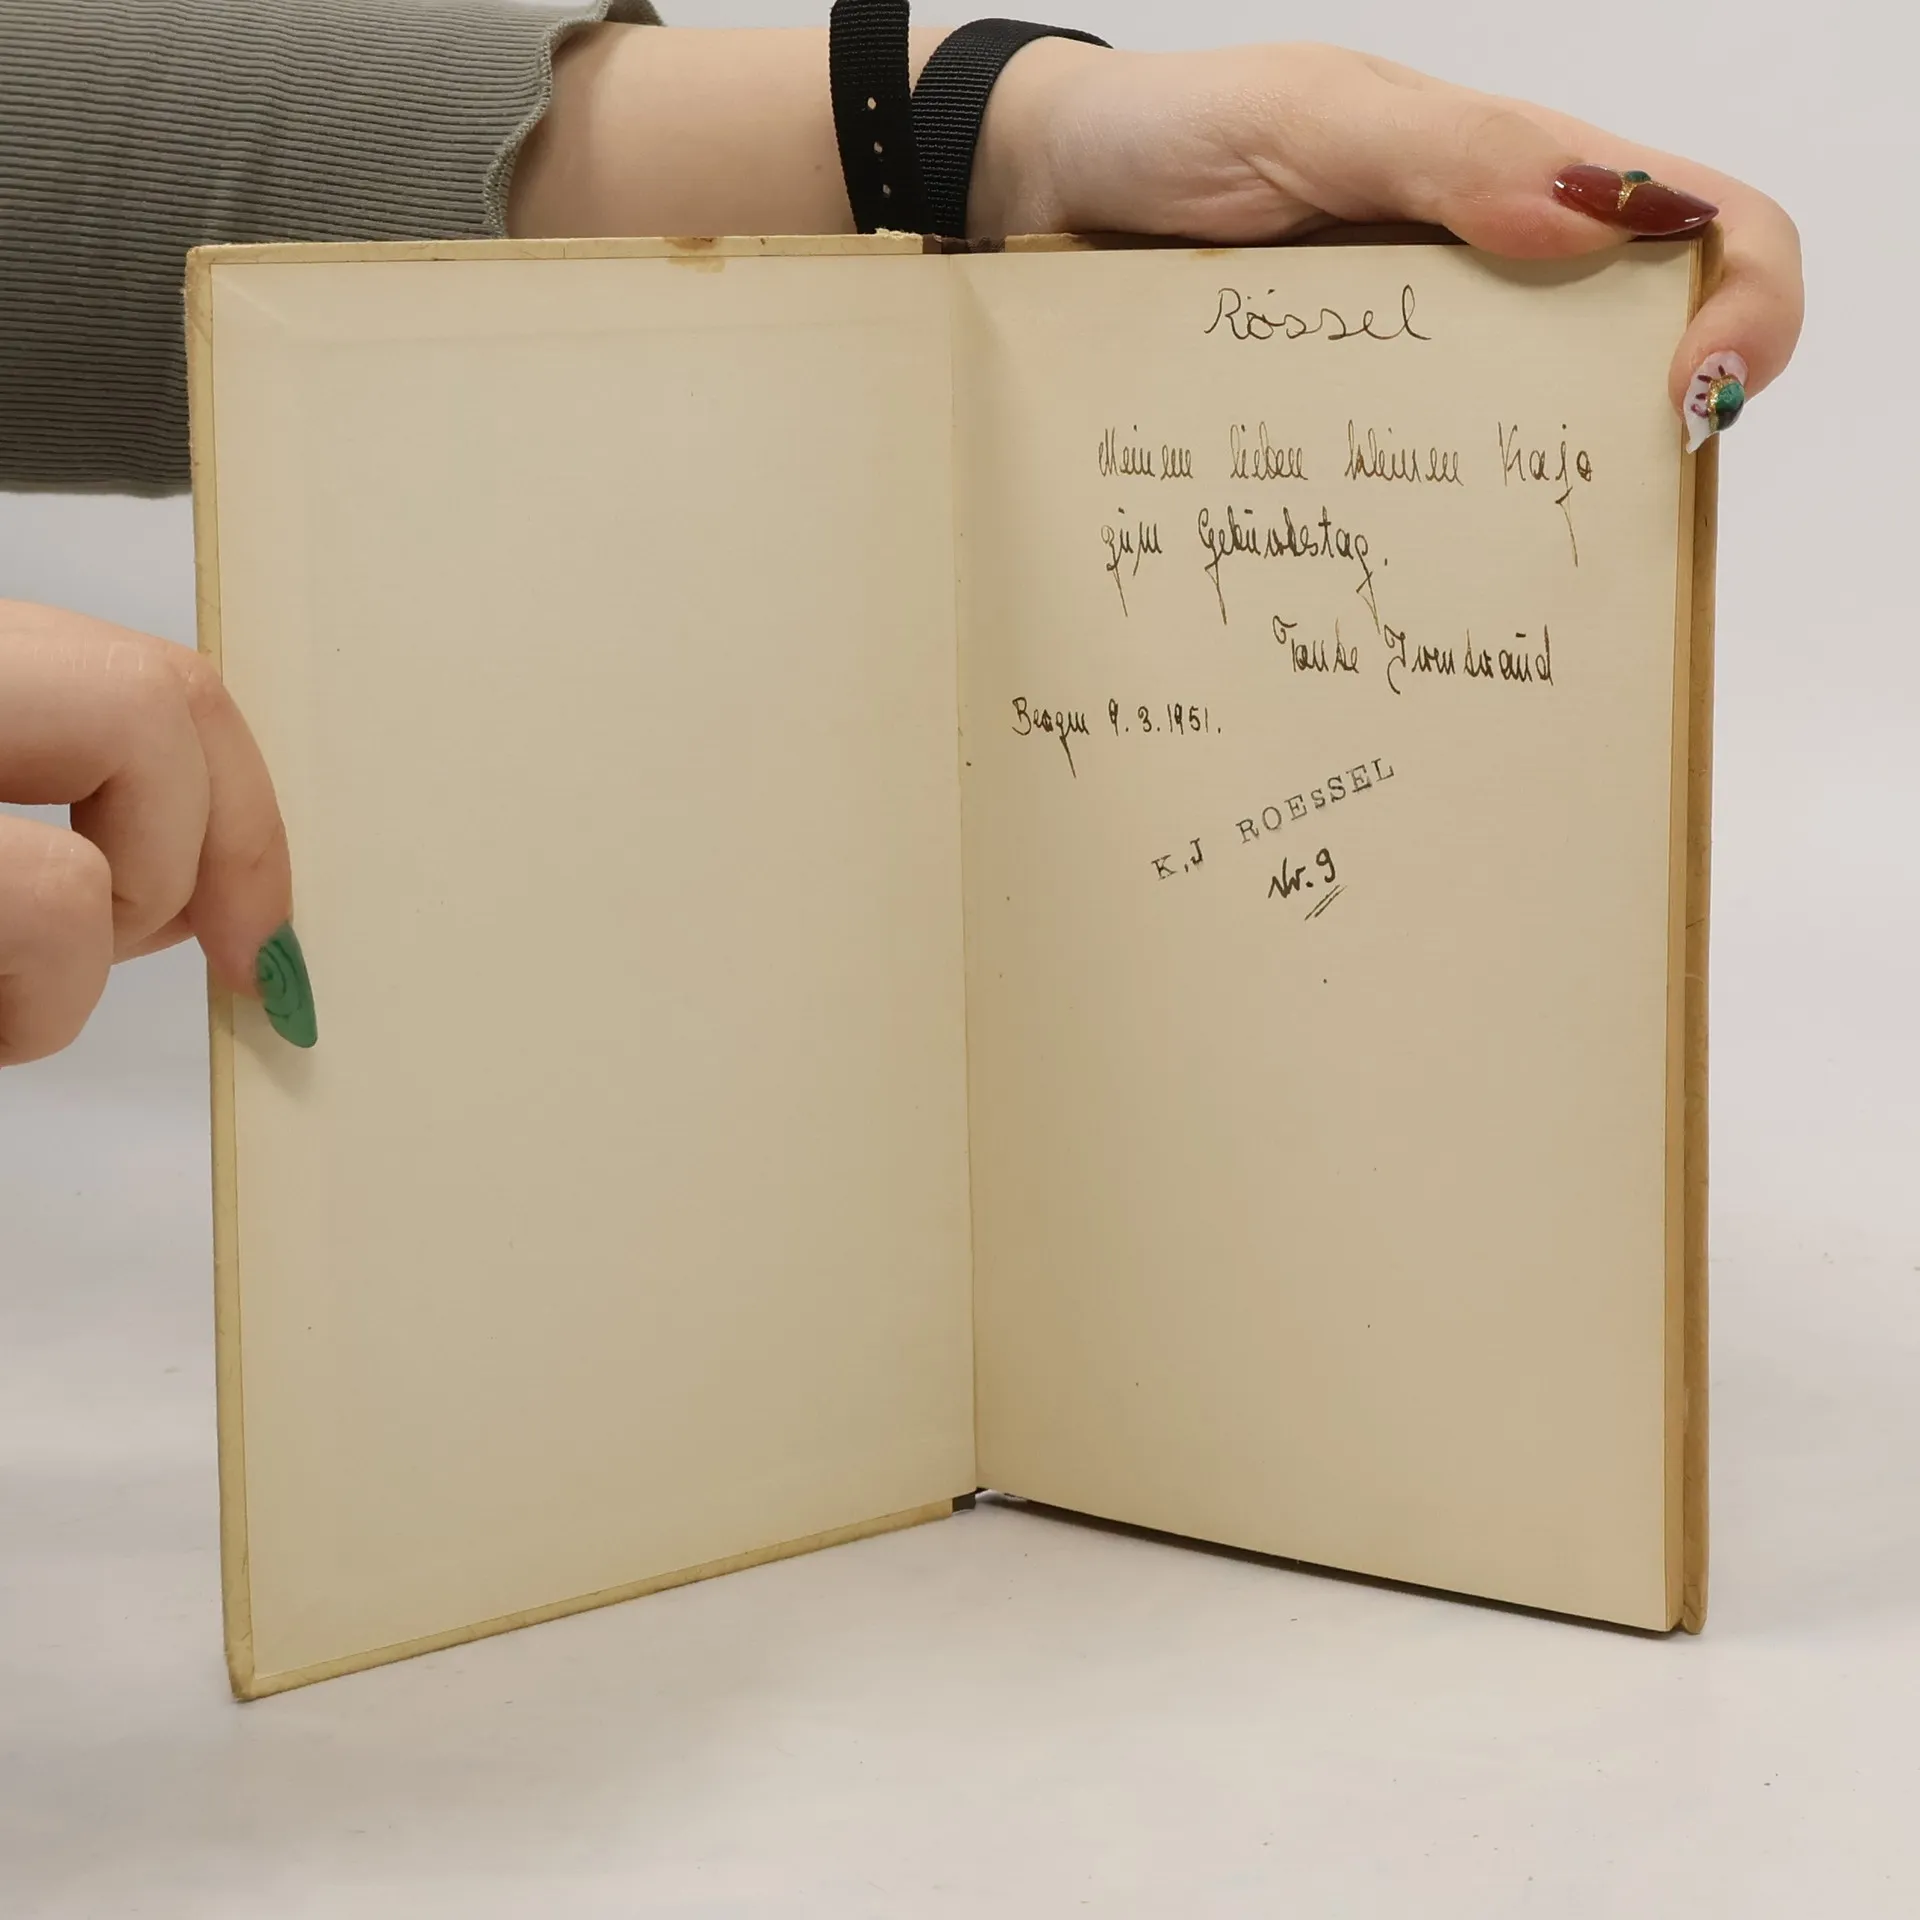 Rössel
Meinem lieben kleinen Kajo
zum Geburtstag.
Tante Irmtraud
Bergen 9.3.1951.
K,J ROEsSEL
Nr. 9